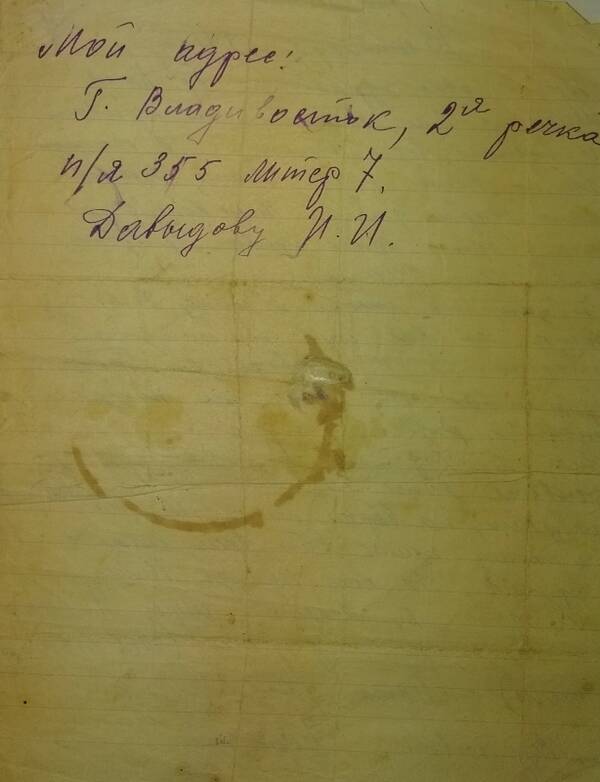 Мой адрес:
Г. Владивосток, 2я речка
п/я 355 литер 7.
Давыдову И. И.